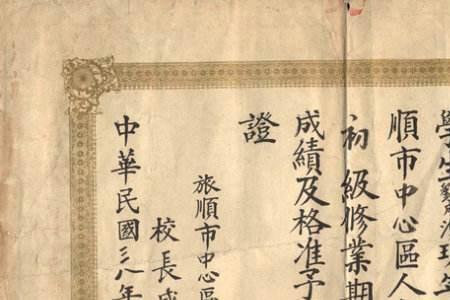 學生
順市中心區人
初級修業期
成績及格准予
證
旅順市中心區
校長
中華民國三八年